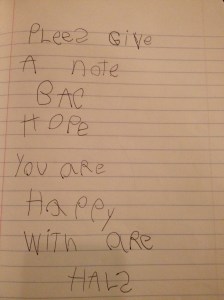 PLeeS GiVe
A note
BAC
HOPe
You are
Happy
With are
HALS